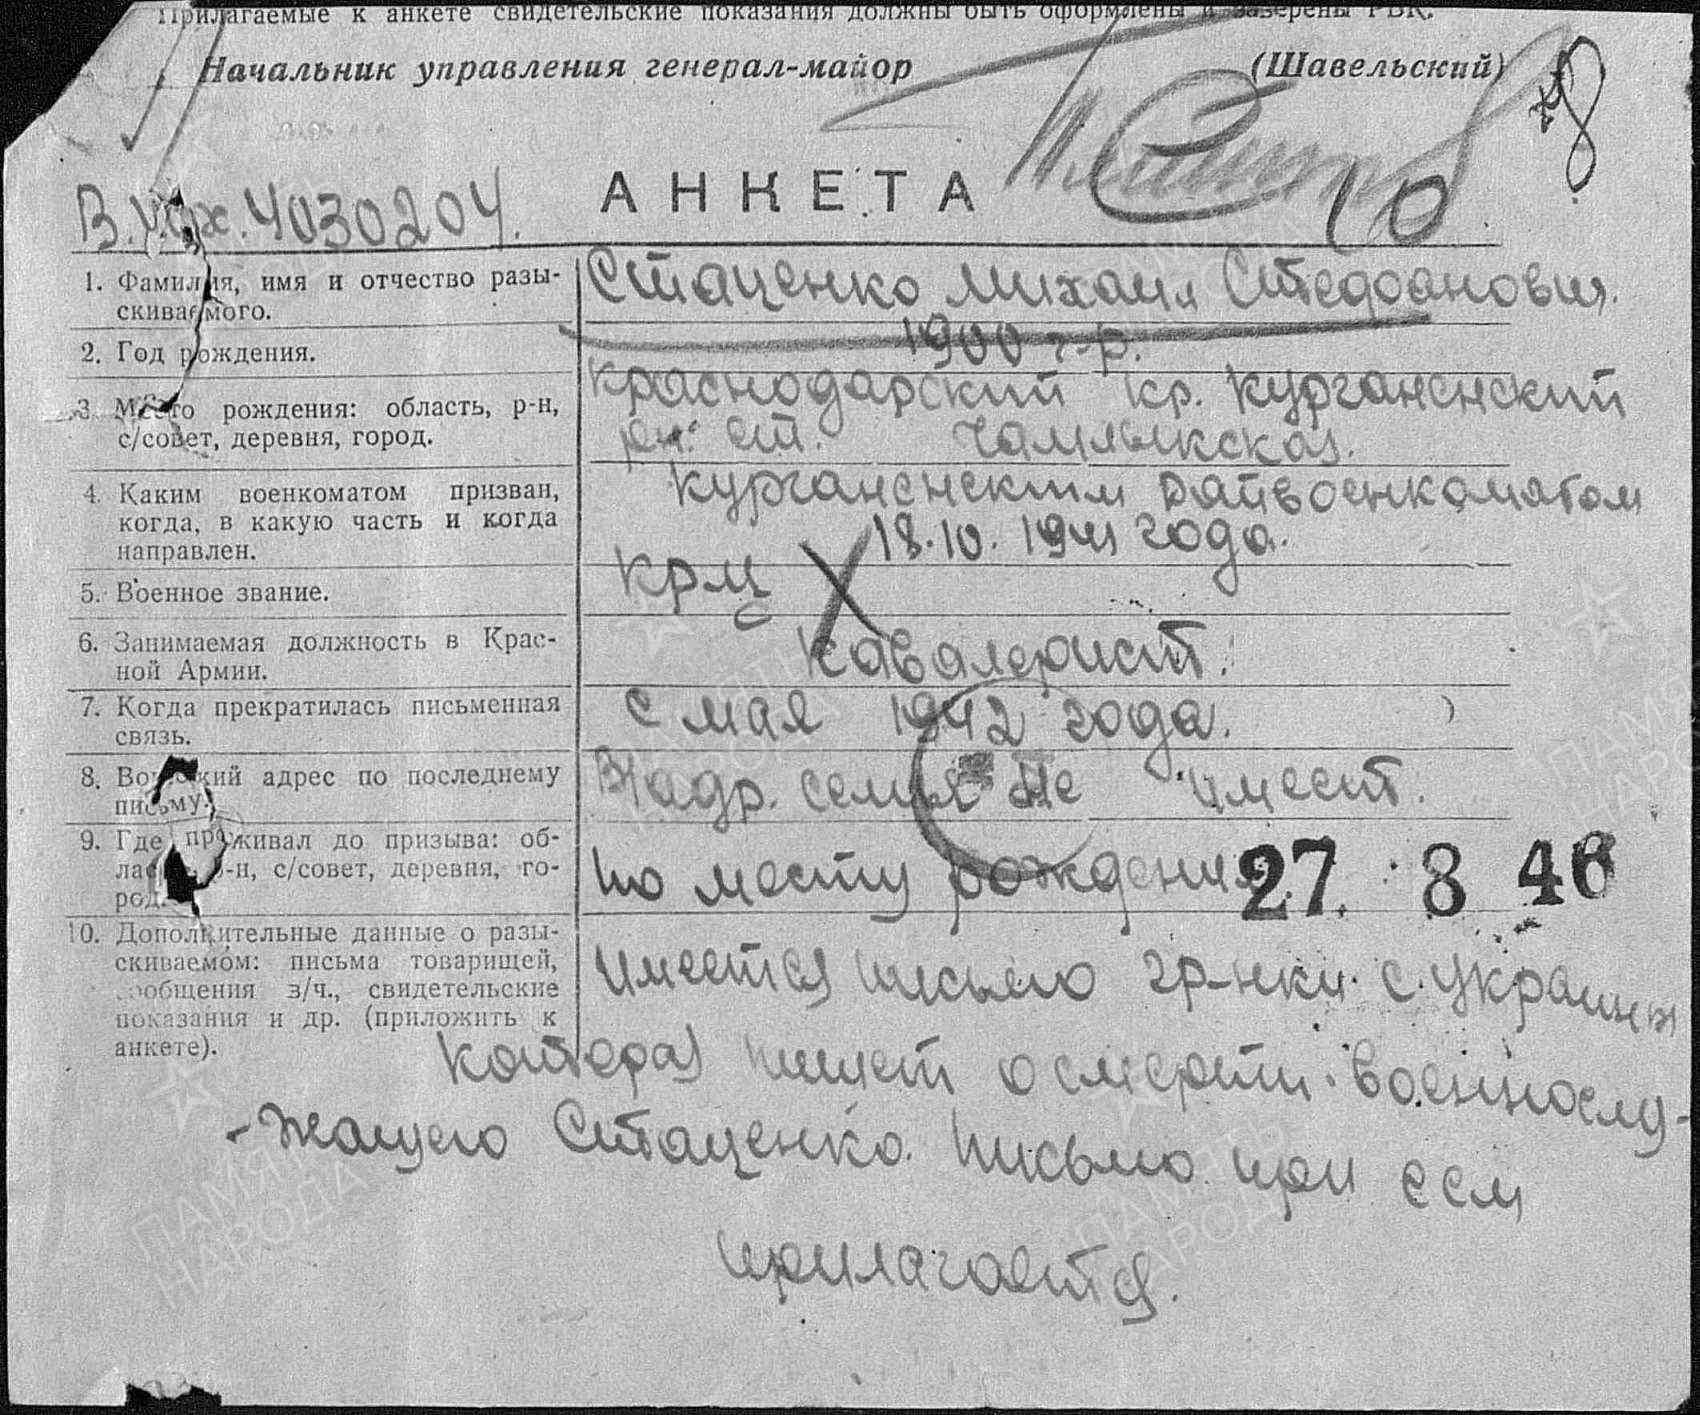 Прилагаемые к анкете свидетельские показания должны быть оформлены и заверены РВК.
Начальник управления генерал-майор (Шавельский)
78
В. 4030204. АНКЕТА 10
1. Фамилия, имя и отчество разы-
скиваемого.
Стаценко Михаил Стефанович.
2. Год рождения.
1900 г-р.
3. Место рождения: область, р-н,
с/совет, деревня, город.
Краснодарский кр. Курганенский
рн. ст. Чамлыкская.
4. Каким военкоматом призван,
когда, в какую часть и когда
направлен.
Курганенским Райвоенкоматом
18.10. 1941 года.
5. Военное звание.
Крмц
6. Занимаемая должность в Крас-
ной Армии.
Кавалерист.
7. Когда прекратилась письменная
связь.
с мая 1942 года.
8. Воинский адрес по последнему
письму.
адр. семья не имеет.
9. Где проживал до призыва: об-
ласть, р-н, с/совет, деревня, го-
род.
по месту рождения
27. 8 46
10. Дополнительные данные о разы-
скиваемом: письма товарищей,
сообщения з/ч., свидетельские
показания и др. (приложить к
анкете).
имеется письмо гр-нки с. Украины
которая пишет о смерти военнослу-
-жащего Стаценко. письмо при сем
прилагается.
ПАМЯТЬ
НАРОДА